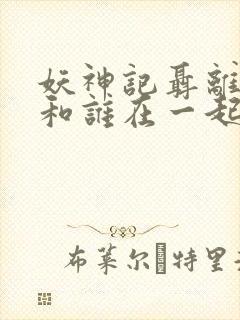 妖神記聶離
和誰在一起
布莱尔 特里